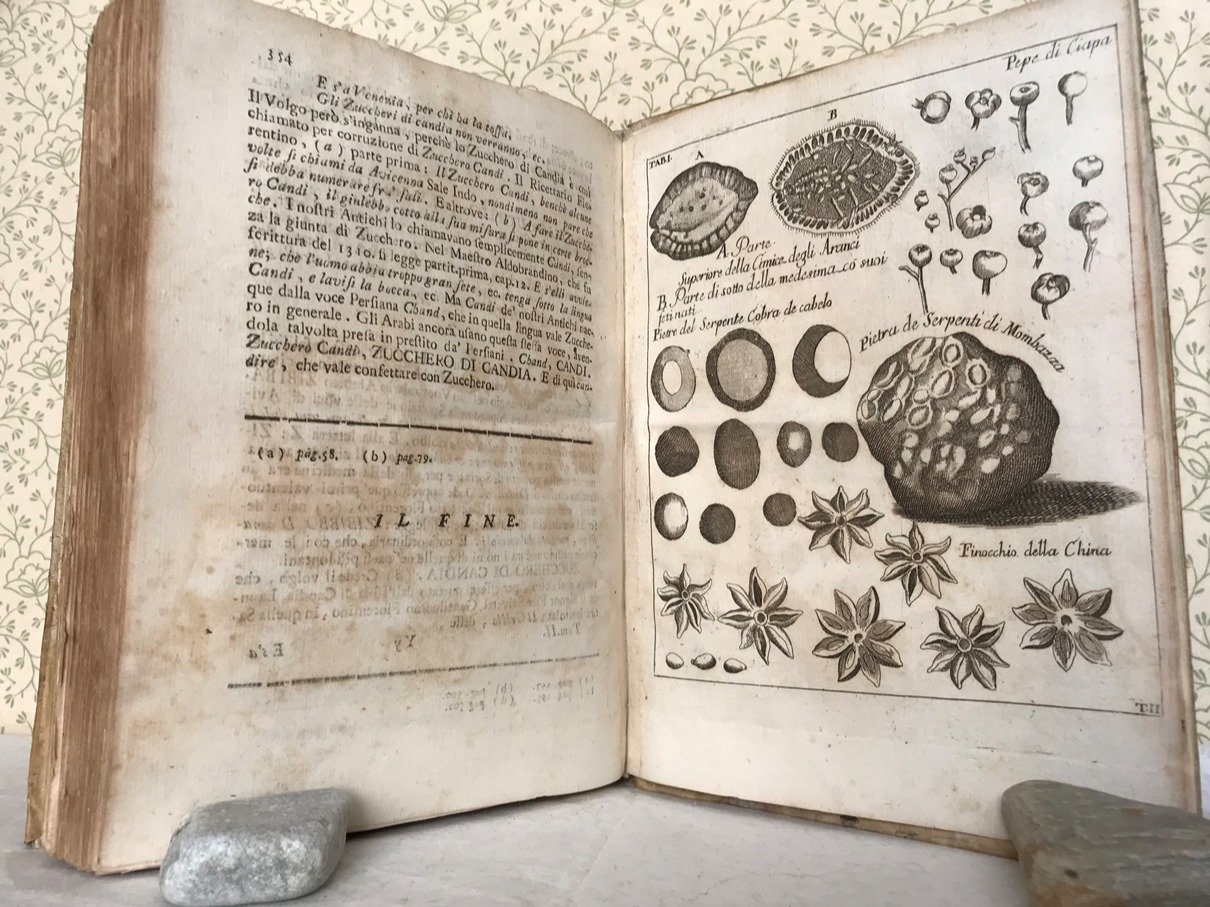 354
E s'a Venenia, per chi ha la tossa,
Gli Zuccheri di candia non verranno, ec.
Il Volgo però s'inganna, perchè lo Zucchero di Candia è così
chiamato per corruzione di Zucchero Candi. Il Ricettario Fio-
rentino, (a) parte prima: Il Zucchero Candi, benchè alcune
volte si chiami da Avicenna Sale Indo, nondimeno non pare che
si debba numerare fra' sali. Ealtrove: (b) A fare il Zucche-
ro Candi, il giulebbo cotto alla sua misura si pone in certe broc-
che. I nostri Antichi lo chiamavano semplicemente Candi, sen-
za la giunta di Zucchero. Nel Maestro Aldobrandino, che fu
scrittura del 1310. si legge partit. prima, cap. 12. E s'elli avvie-
ne, che l'uomo abbia troppo gran sete, ec. tenga sotto la lingua
Candi, e lavisi la bocca, ec. Ma Candi de' nostri Antichi nac-
que dalla voce Persiana Chand, che in quella lingua vale Zucche-
ro in generale. Gli Arabi ancora usano questa stessa voce, aven-
dola talvolta presa in prestito da' Persiani. Chand, CANDI.
Zucchero Candi, ZUCCHERO DI CANDIA. E di quì can-
dire, che vale confettare con Zucchero.
(a) pag. 58. (b) pag. 79.
IL FINE.
Pepe di Ciapa
TAB I.
A
B
A. Parte
Superiore della Cimice degli Aranci
B. Parte di sotto della medesima co suoi
Pietre del Serpente Cobra de cabelo
Pietra de Serpenti di Mombazza
Finocchio della China
T. II